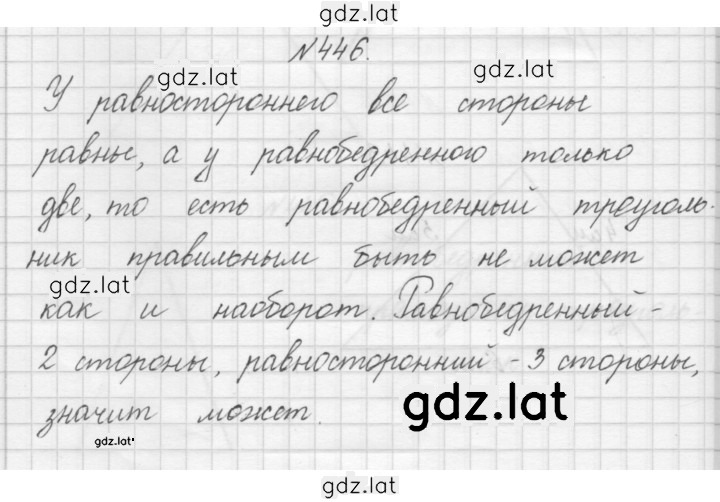 gdz.lat
№446.
gdz.lat gdz.lat
У равностороннего все стороны
равны, а у равнобедренного только
две, то есть равнобедренный треуголь-
ник правильным быть не может
gdz.lat
как и наоборот. Равнобедренный -
2 стороны, равносторонний - 3 стороны,
значит может.
gdz.lat
gdz.lat
gdz.lat